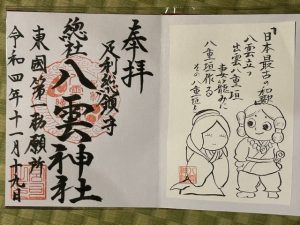 「日本最古の和歌」
八雲立つ
出雲八重垣
妻籠みに
八重垣作る
その八重垣を
奉拝
足利総鎮守
總社八雲神社
東國第一祈願所
令和四年十一月十九日